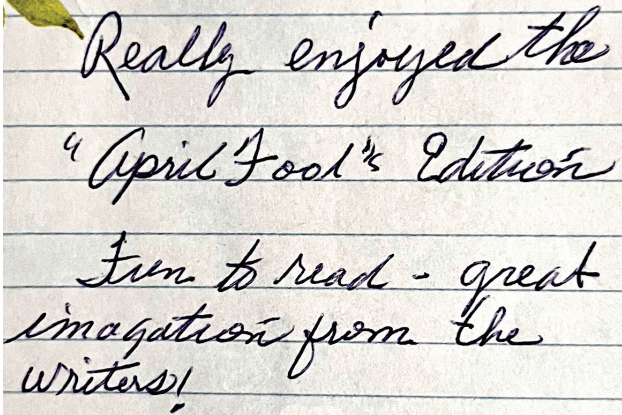 Really enjoyed the
"April Fool"s Edition
Fun to read - great
imagation from the
writers!